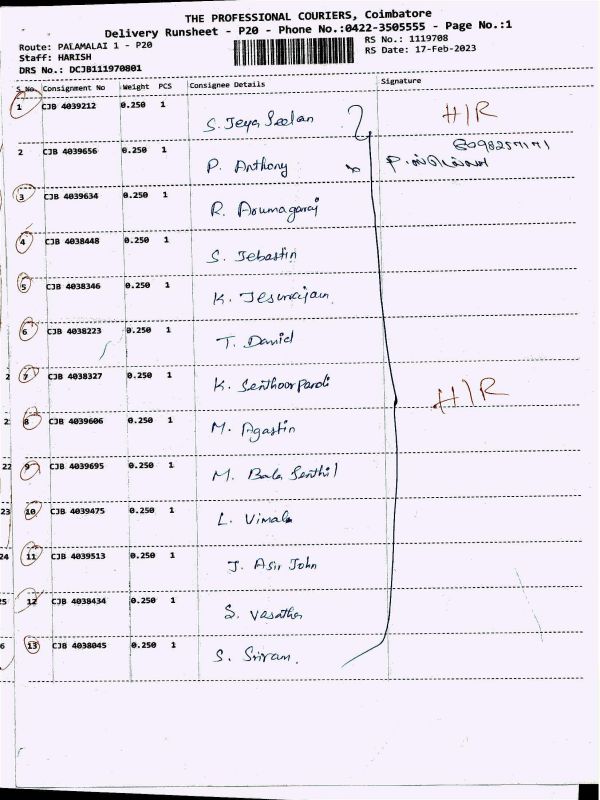 THE PROFESSIONAL COURIERS, Coimbatore
Delivery Runsheet - P20 - Phone No.:0422-3505555 - Page No.:1
Route: PALAMALAI 1 - P20
RS No.: 1119708
Staff: HARISH
RS Date: 17-Feb-2023
DRS No.: DCJB111970801
S No Consignment No Weight PCS Consignee Details Signature
1 CJB 4039212 0.250 1 S. Jeya Seelan H/R
2 CJB 4039656 0.250 1 P. Anthony
3 CJB 4039634 0.250 1 R. Arumagaraj
4 CJB 4038448 0.250 1 S. Jebastin
5 CJB 4038346 0.250 1 K. Jesurajan
6 CJB 4038223 0.250 1 T. Daniel
7 CJB 4038327 0.250 1 K. Senthoorpandi H/R
8 CJB 4039606 0.250 1 M. Agastin
22 9 CJB 4039695 0.250 1 M. Bala Senthil
23 10 CJB 4039475 0.250 1 L. Vimala
24 11 CJB 4039513 0.250 1 J. Asir John
12 CJB 4038434 0.250 1 S. Vasatha
13 CJB 4038045 0.250 1 S. Sriram.